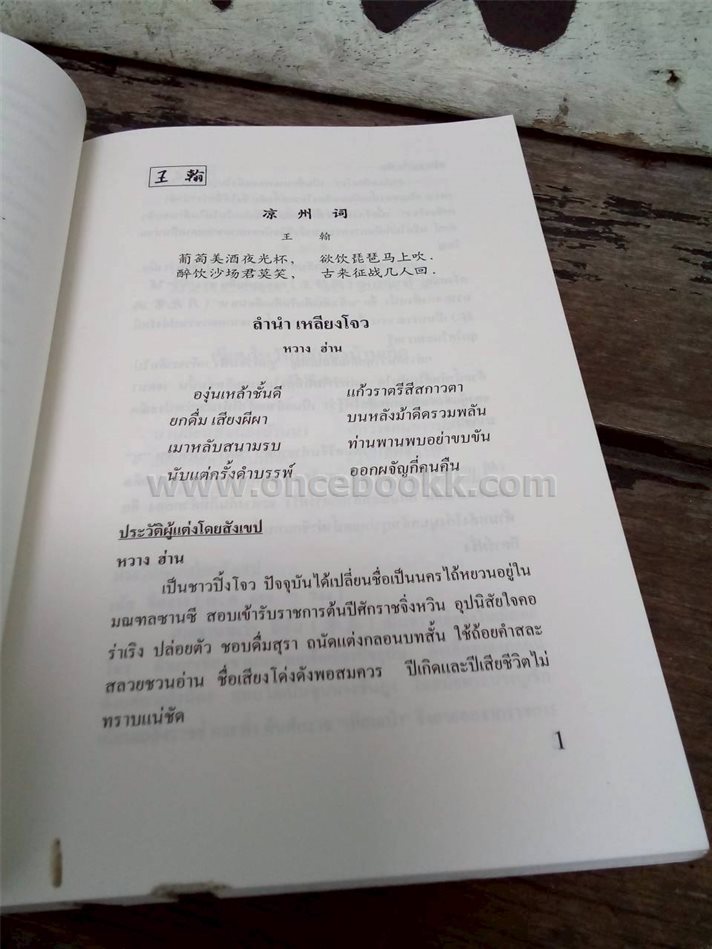 王 翰
凉 州 词
王 翰
葡萄美酒夜光杯, 欲饮琵琶马上吹.
醉饮沙场君莫笑, 古来征战几人回.
ลำนำ เหลียงโจว
หวาง ฮ่าน
องุ่นเหล้าชั้นดี แก้วราตรีสีสกาวตา
ยกดื่ม เสียงผีผา บนหลังม้าดีดรวมพลัน
เมาหลับสนามรบ ท่านพานพบอย่าขบขัน
นับแต่ครั้งดำบรรพ์ ออกผจัญกี่คนคืน
www.oncebookk.com
ประวัติผู้แต่งโดยสังเขป
หวาง ฮ่าน
เป็นชาวปิ้งโจว ปัจจุบันได้เปลี่ยนชื่อเป็นนครไถ้หยวนอยู่ใน
มณฑลซานซี สอบเข้ารับราชการต้นปีศักราชจิ่งหวิน อุปนิสัยใจคอ
ร่าเริง ปล่อยตัว ชอบดื่มสุรา ถนัดแต่งกลอนบทสั้น ใช้ถ้อยคำสละ
สลวยชวนอ่าน ชื่อเสียงโด่งดังพอสมควร ปีเกิดและปีเสียชีวิตไม่
ทราบแน่ชัด
1